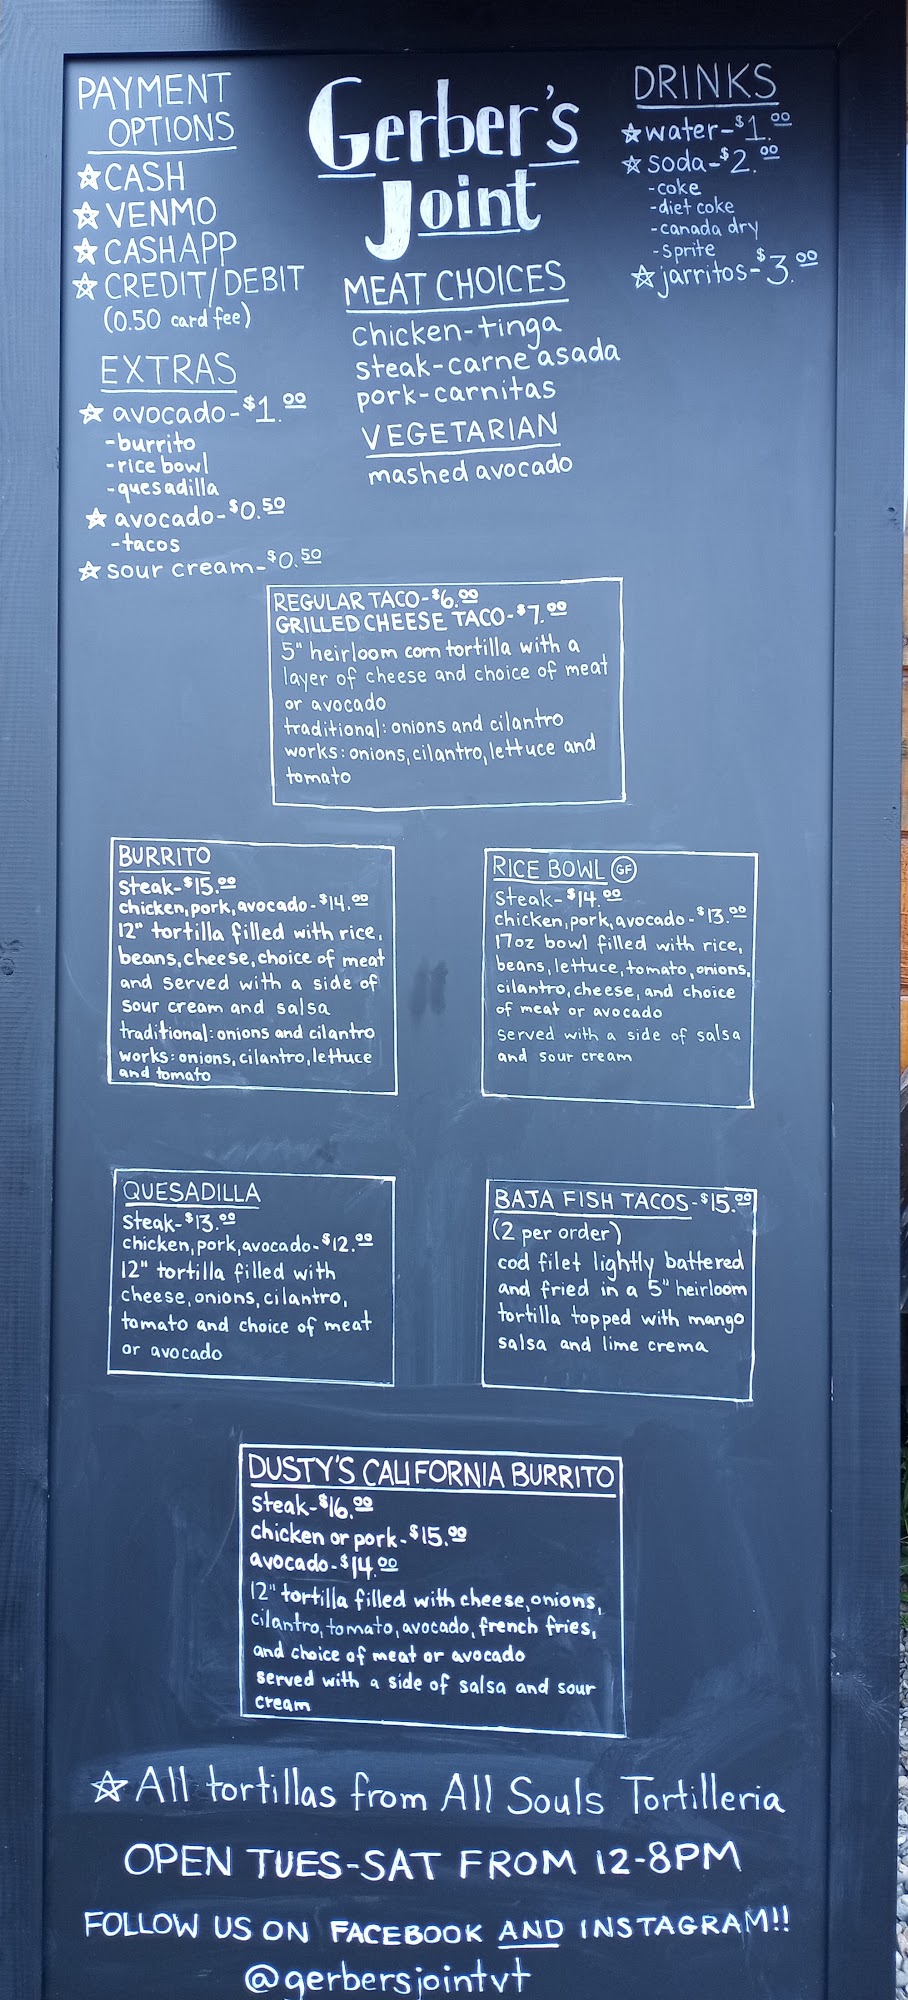 PAYMENT
OPTIONS
☆CASH
☆VENMO
☆CASHAPP
☆CREDIT/DEBIT
(0.50 card fee)
EXTRAS
☆ avocado-$1.00
-burrito
-rice bowl
-quesadilla
☆ avocado-$0.50
-tacos
☆ sour cream-$0.50
Gerber's
Joint
MEAT CHOICES
chicken-tinga
steak-carne asada
pork-carnitas
VEGETARIAN
mashed avocado
DRINKS
☆water-$1.00
☆soda-$2.00
-coke
-diet coke
-canada dry
-sprite
☆jarritos-$3.00
REGULAR TACO-$6.00
GRILLED CHEESE TACO-$7.00
5" heirloom corn tortilla with a
layer of cheese and choice of meat
or avocado
traditional: onions and cilantro
works: onions, cilantro, lettuce and
tomato
BURRITO
steak-$15.00
chicken, pork, avocado-$14.00
12" tortilla filled with rice,
beans, cheese, choice of meat
and served with a side of
sour cream and salsa
traditional: onions and cilantro
works: onions, cilantro, lettuce
and tomato
RICE BOWL GF
steak-$14.00
chicken, pork, avocado-$13.00
17oz bowl filled with rice,
beans, lettuce, tomato, onions,
cilantro, cheese, and choice
of meat or avocado
served with a side of salsa
and sour cream
QUESADILLA
steak-$13.00
chicken, pork, avocado-$12.00
12" tortilla filled with
cheese, onions, cilantro,
tomato and choice of meat
or avocado
BAJA FISH TACOS-$15.00
(2 per order)
cod filet lightly battered
and fried in a 5" heirloom
tortilla topped with mango
salsa and lime crema
DUSTY'S CALIFORNIA BURRITO
steak-$16.00
chicken or pork-$15.00
avocado-$14.00
12" tortilla filled with cheese, onions,
cilantro, tomato, avocado, french fries,
and choice of meat or avocado
served with a side of salsa and sour
cream
☆All tortillas from All Souls Tortilleria
OPEN TUES-SAT FROM 12-8PM
FOLLOW US ON FACEBOOK AND INSTAGRAM!!
@gerbersjointvt